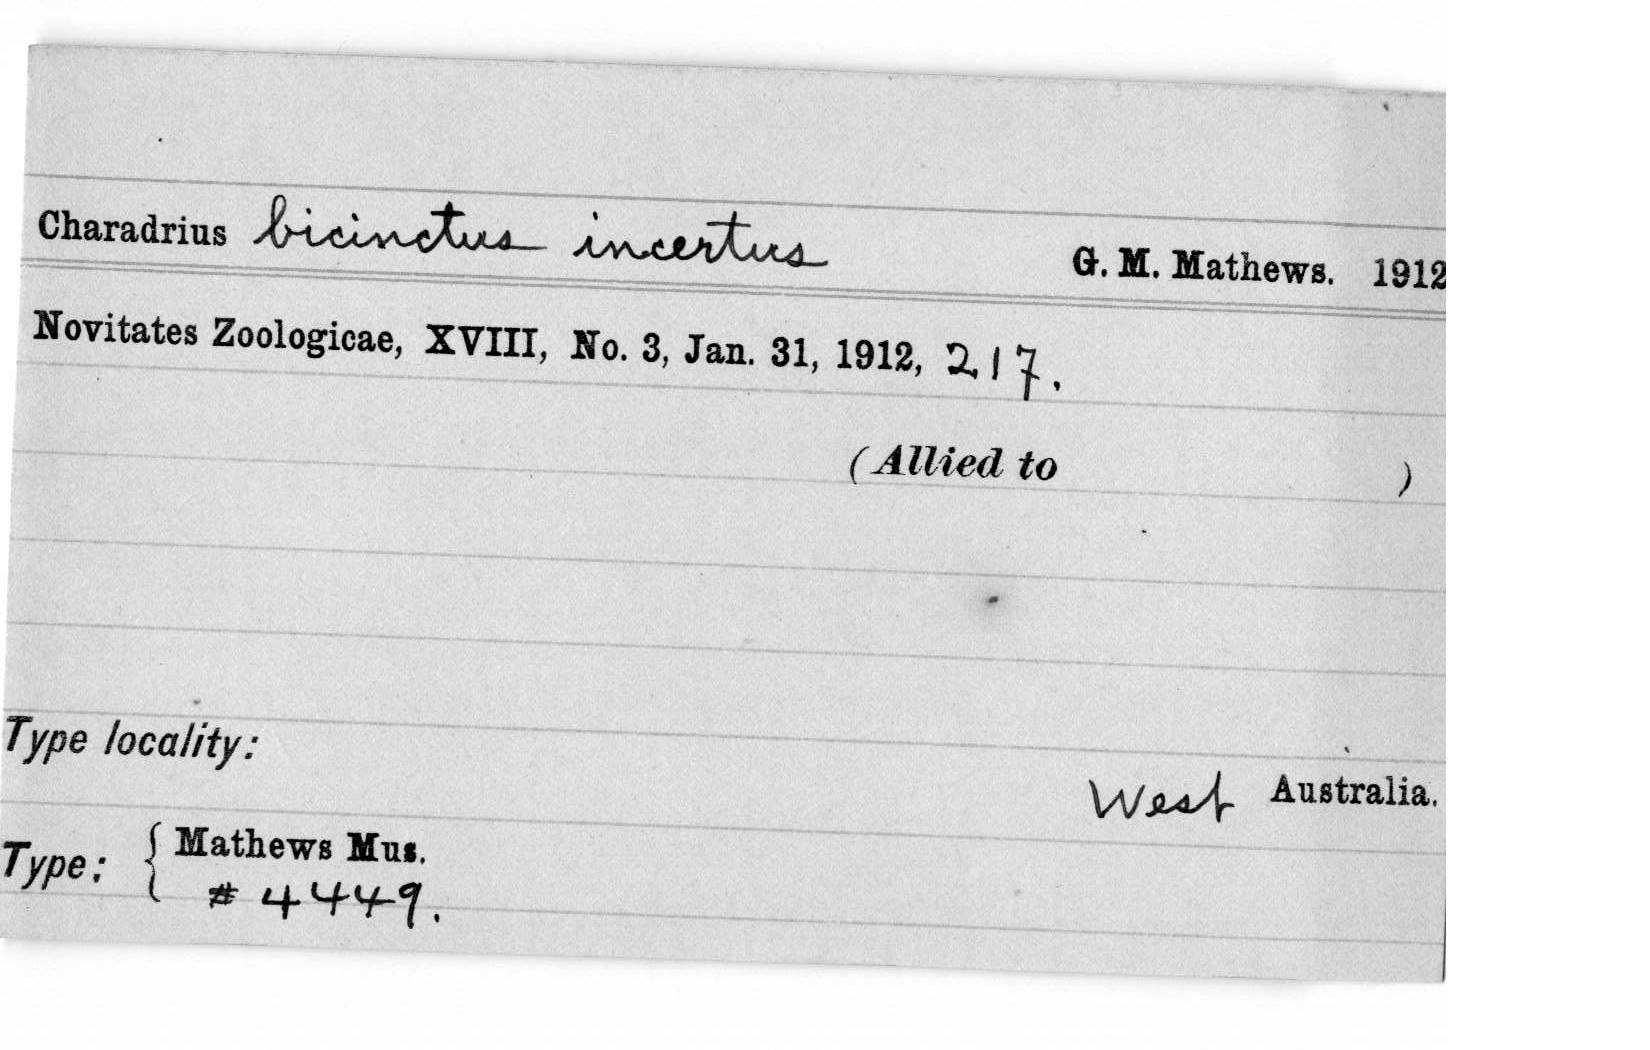 Charadrius bicinctus incertus G. M. Mathews. 1912
Novitates Zoologicae, XVIII, No. 3, Jan. 31, 1912, 217.
(Allied to )
Type locality:
West Australia.
Type: { Mathews Mus.
# 4449.